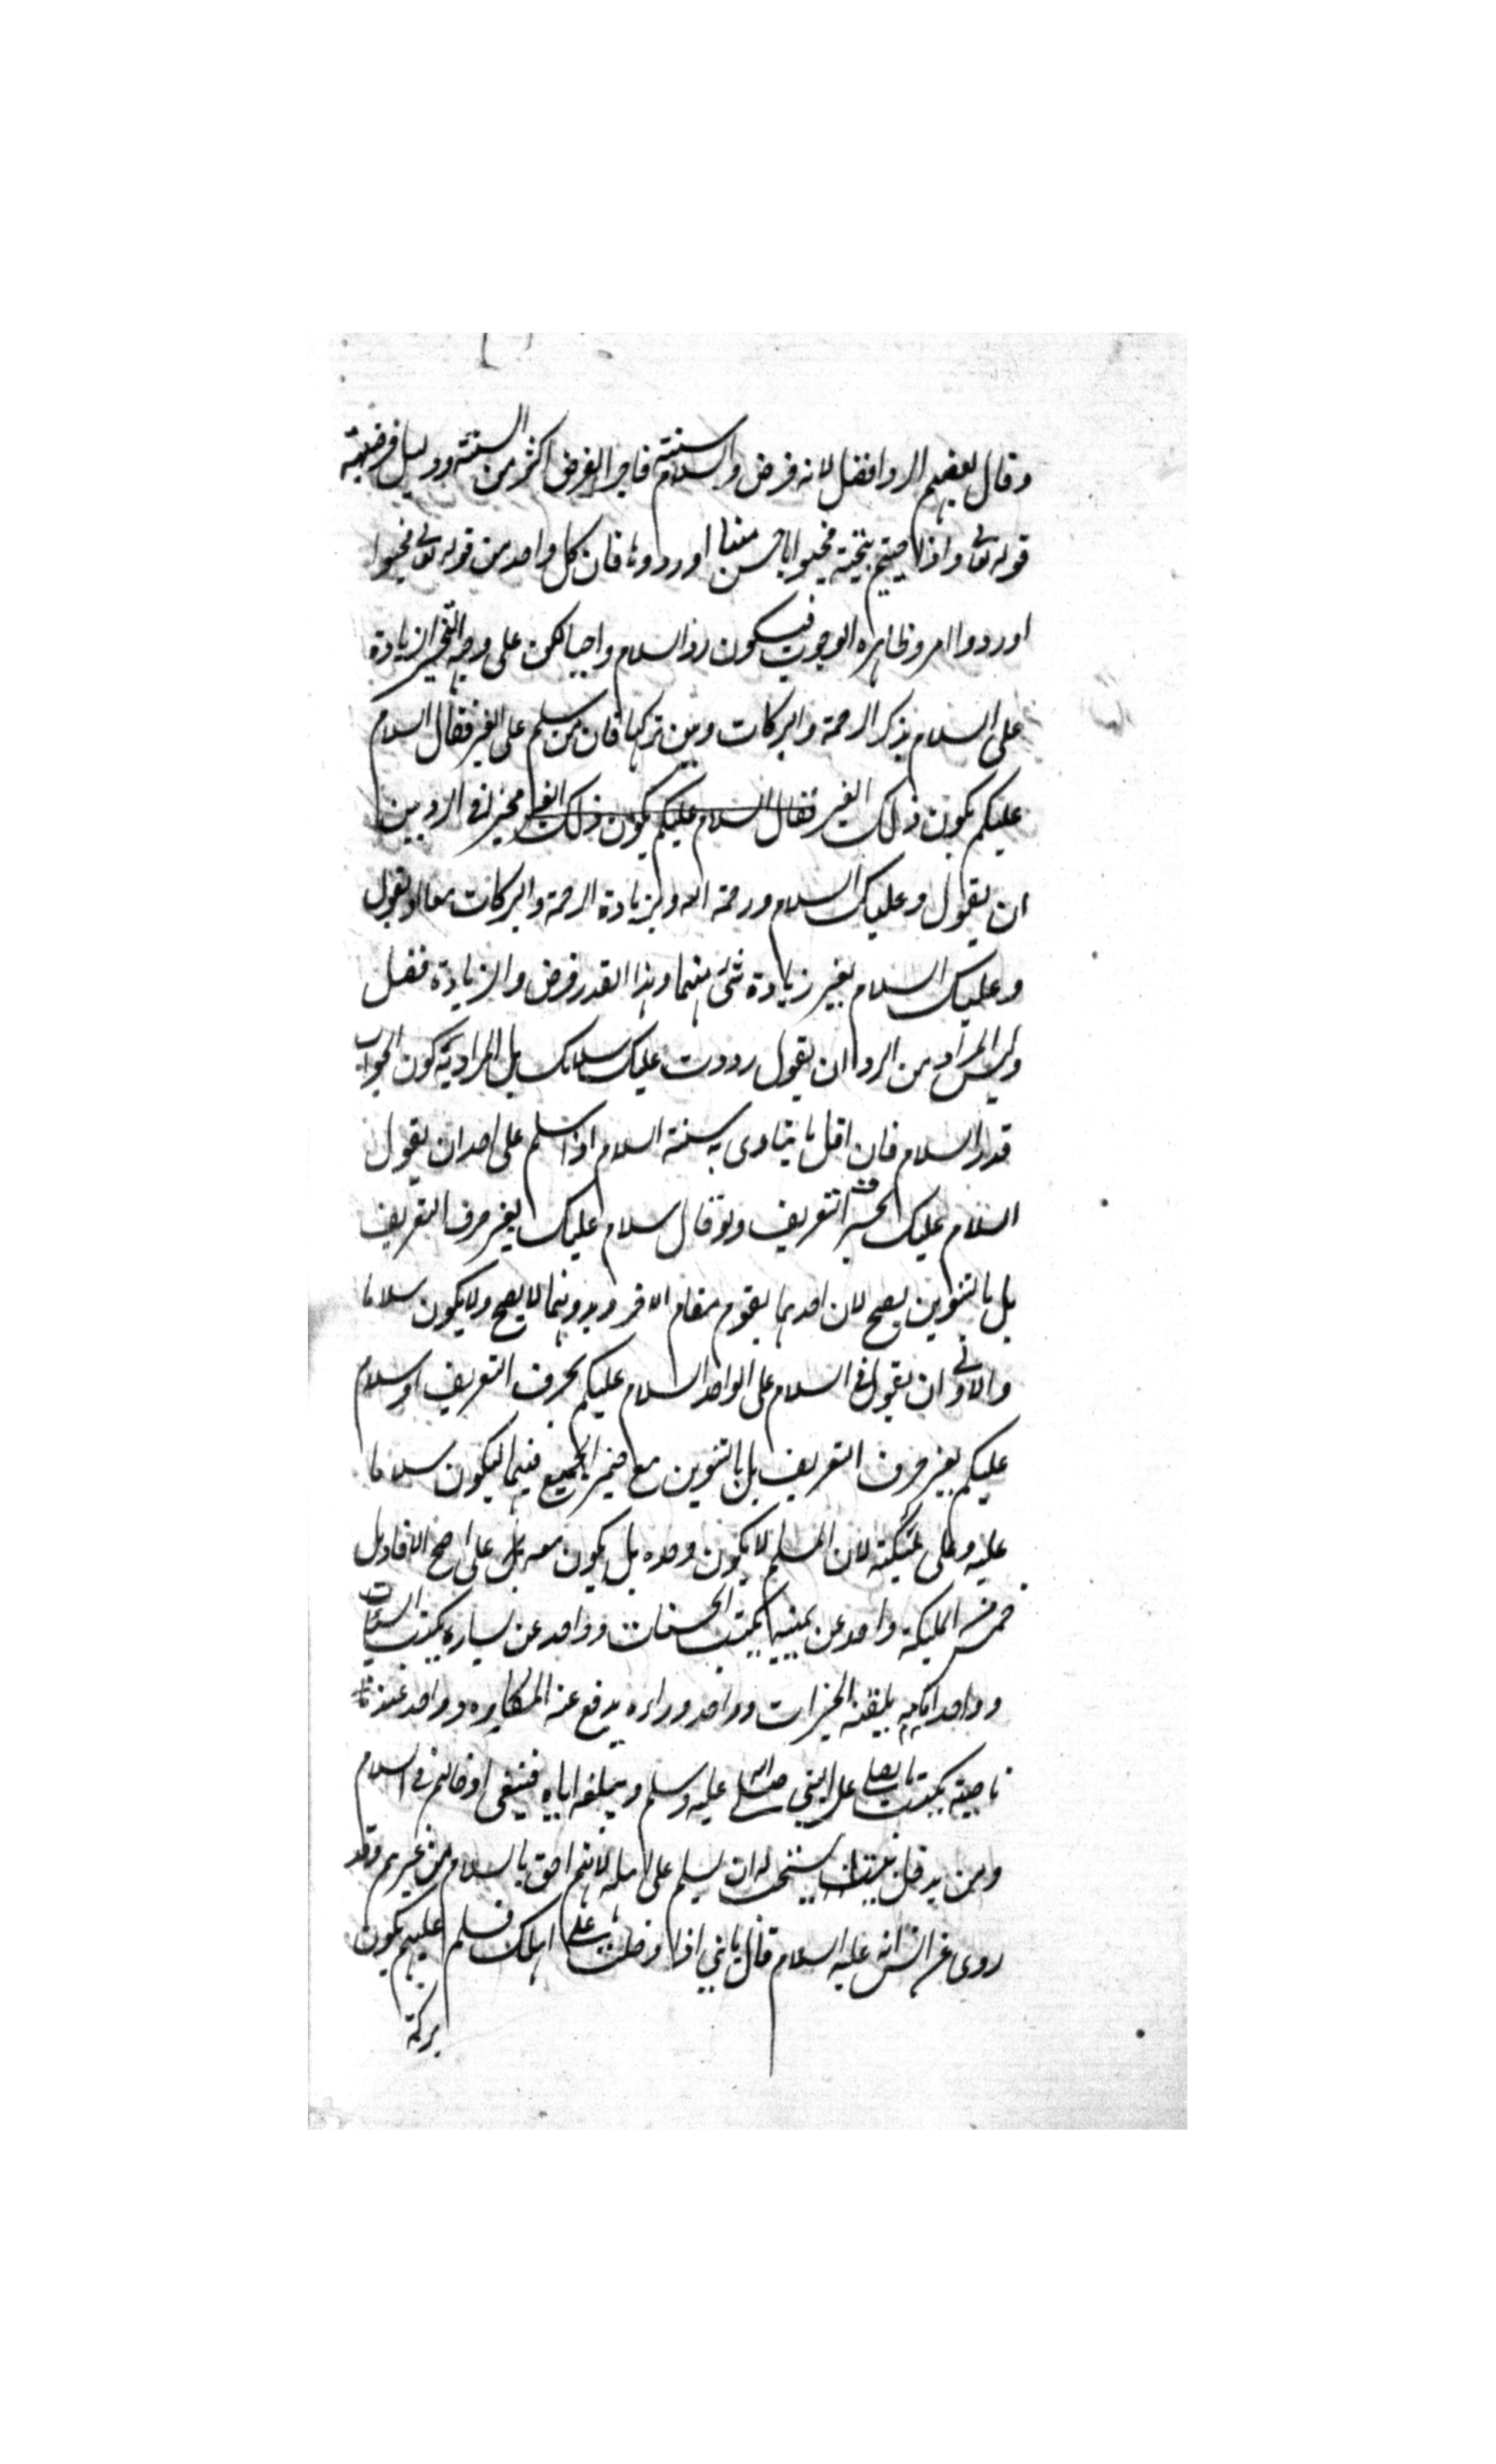 وقال بعضهم الرد افضل لانه فرض والسلام سنة فاجر الفرض اكثر من السنة ودليل فرضيته
قوله تعالى واذا حييتم بتحية فحيوا باحسن منها او ردوها فان كل واحد من قوله تعالى فحيوا
او ردوا امر وظاهره الوجوب فيكون رد السلام واجبا لكن على وجه التخير الزيادة
على السلام بذكر الرحمة والبركات وبين تركها فان من سلم على الغير فقال السلام
عليكم يكون ذلك الغير فقال السلام عليكم يكون ذلك الغير مخير في الرد بين
ان يقول وعليك السلام ورحمة الله وبزيادة الرحمة والبركات معا او يقول
وعليك السلام بغير زيادة شئ منهما وهذا القدر فرض والزيادة فضل
وليس المراد من الرد ان يقول رددت عليك سلامك بل المراد به كون الجواب
قدر السلام فان اقل ما يتادى به سنة السلام اذا سلم على احد ان يقول
السلام عليك بحرف التعريف ولو قال سلام عليك بغير حرف التعريف
بل بالتنوين يصح لان احدهما يقوم مقام الاخر وبدونهما لا يصح ولا يكون سلاما
والاولى ان يقول في السلام على الواحد السلام عليكم بحرف التعريف او سلام
عليكم بغير حرف التعريف بل بالتنوين مع ضمير الجمع فيهما ليكون سلاما
عليه وعلى ملئكته لان المسلم لا يكون وحده بل يكون معه على اصح الاقاويل
خمس من المليكة واحد عن يمينه يكتب الحسنات وواحد عن يساره يكتب السيئات
وواحد امامه يلقنه الخيرات وواحد وراءه يدفع عنه المكاره وواحد عند
ناصيته يكتب ما يصلى على النبي صلى الله عليه وسلم ويبلغه اياه فينبغي ادخالهم في السلام
ومن يدخل بيته يستحب له ان يسلم على اهله لانهم احق بالسلام من غيرهم وقد
روى عن انس انه عليه السلام قال يا بني اذا دخلت على اهلك فسلم عليهم يكون
بركة